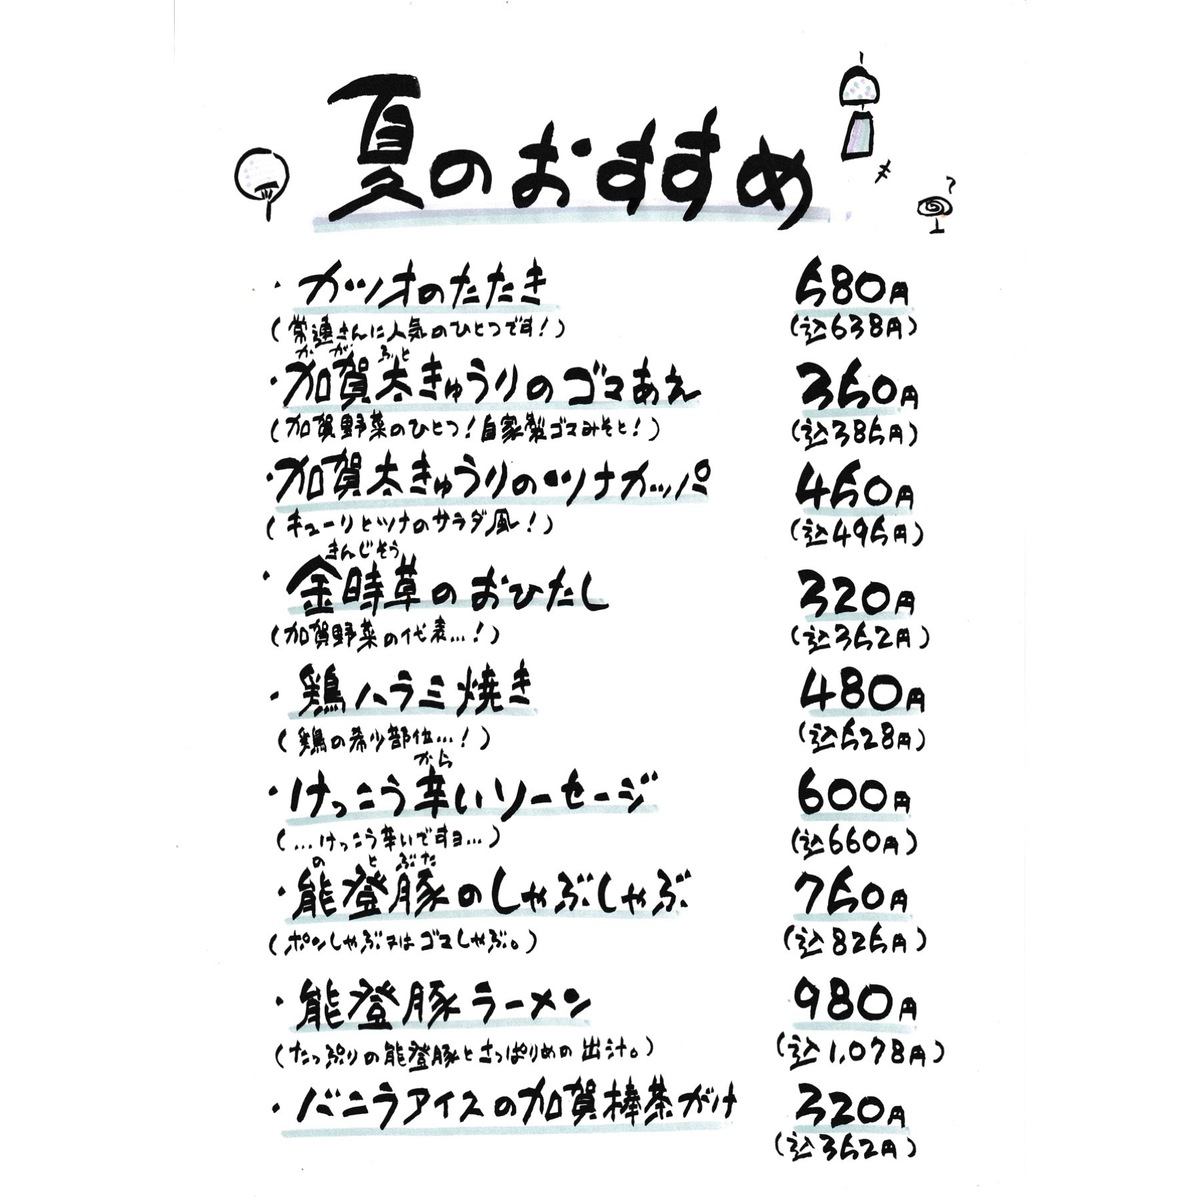 夏のおすすめ
・カツオのたたき 580円
(常連さんに人気のひとつです!) (込638円)
かがぶと
・加賀太きゅうりのゴマあえ 350円
(加賀野菜のひとつ!自家製ゴマみそと!) (込385円)
・加賀太きゅうりのツナカッパ 450円
(キューリとツナのサラダ風!) (込495円)
きんじそう
・金時草のおひたし 320円
(加賀野菜の代表…!) (込352円)
・鶏ハラミ焼き 480円
(鶏の希少部位…!) (込528円)
から
・けっこう辛いソーセージ 600円
(…けっこう辛いですヨ…) (込660円)
のとぶた
・能登豚のしゃぶしゃぶ 750円
(ポンしゃぶ又はゴマしゃぶ。) (込825円)
・能登豚ラーメン 980円
(たっぷりの能登豚とさっぱりめの出汁。) (込1,078円)
・バニラアイスの加賀棒茶がけ 320円
(込352円)